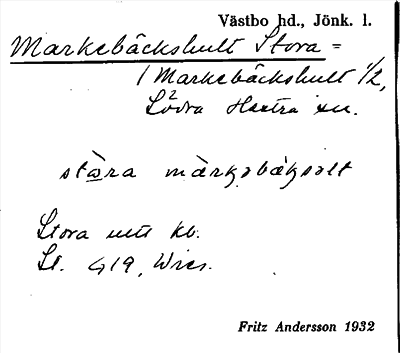 Västbo hd., Jönk. l.
Markebäckshult Stora =
1 Markebäckshult 1/2,
Södra Hestra sn.
stära märkəbäksolt
Stora utt kb.
St. 419,
Fritz Andersson 1932